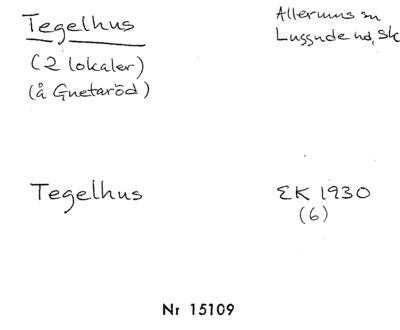 Tegelhus
Allerums sn
Luggude hd, Sk
(2 lokaler)
(å Gnetaröd)
Tegelhus
EK 1930
(6)
Nr 15109